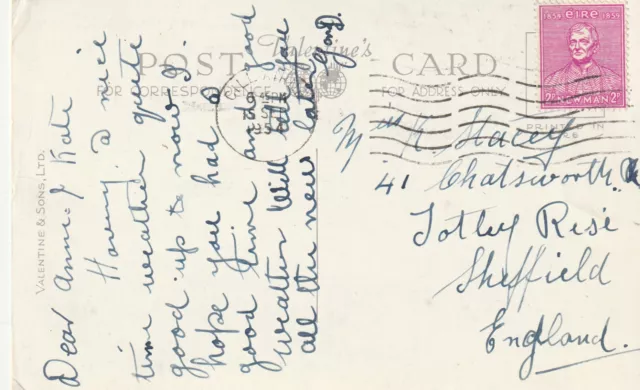 POST CARD
Valentine's
FOR CORRESPONDENCE
FOR ADDRESS ONLY
PRINTED IN
VALENTINE & SONS, LTD.
1854 EIRE 1854
2P NEWMAN 2P
Dear Anne & Kate
Having a nice
time weather quite
good up to now I
hope you had a
good time and good
weather will tell you
all the new later
K Stacey
41 Chatsworth
Totley Rise
Sheffield
England.